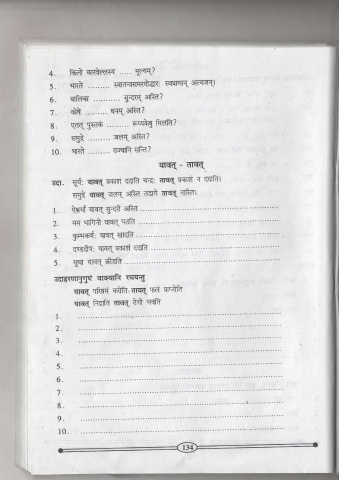 4. किलो कारवेल्लस्य ..... मूल्यम्?
5. भारते ......... स्वातन्त्र्यसमरयोद्धारः स्वप्राणान् अत्यजन्।
6. बालिका .......... सुन्दरम् अस्ति?
7. कोषे ......... धनम् अस्ति?
8. एतत् पुस्तकं ......... रूप्यकेषु मिलति?
9. समुद्रे ......... जलम् अस्ति?
10. भारते ......... राज्यानि सन्ति?
यावत् - तावत्
उदा. सूर्यः यावत् प्रकाशं ददाति चन्द्रः तावत् प्रकाशं न ददाति।
समुद्रे यावत् जलम् अस्ति तडागे तावत् नास्ति।
1. ऐश्वर्या यावत् सुन्दरी अस्ति
2. मम भगिनी यावत् पठति
3. कुम्भकर्णः यावत् खादति
4. दण्डदीपः यावत् प्रकाशं ददाति
5. सुधा यावत् क्रीडति
उदाहरणानुगुणं वाक्यानि रचयन्तु
यावत् परिश्रमं करोति तावत् फलं प्राप्नोति
यावत् निद्राति तावत् रोगी भवति
1.
2.
3.
4.
5.
6.
7.
8.
9.
10.
134